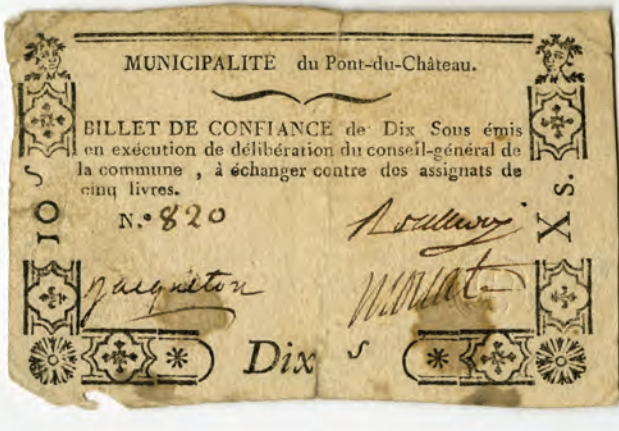 MUNICIPALITE du Pont-du-Château.
BILLET DE CONFIANCE de Dix Sous émis
en exécution de délibération du conseil-général de
la commune , à échanger contre des assignats de
cinq livres.
N.º 820
jacqueton
10 S
X s.
Dix s